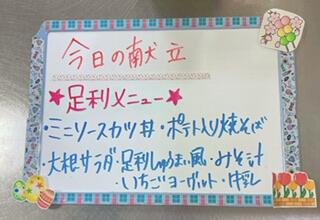 今日の献立
★足利メニュー★
・ミニソースカツ丼・ポテト入り焼そば
大根サラダ・足利しゅうまい風・みそ汁
・いちごヨーグルト・牛乳